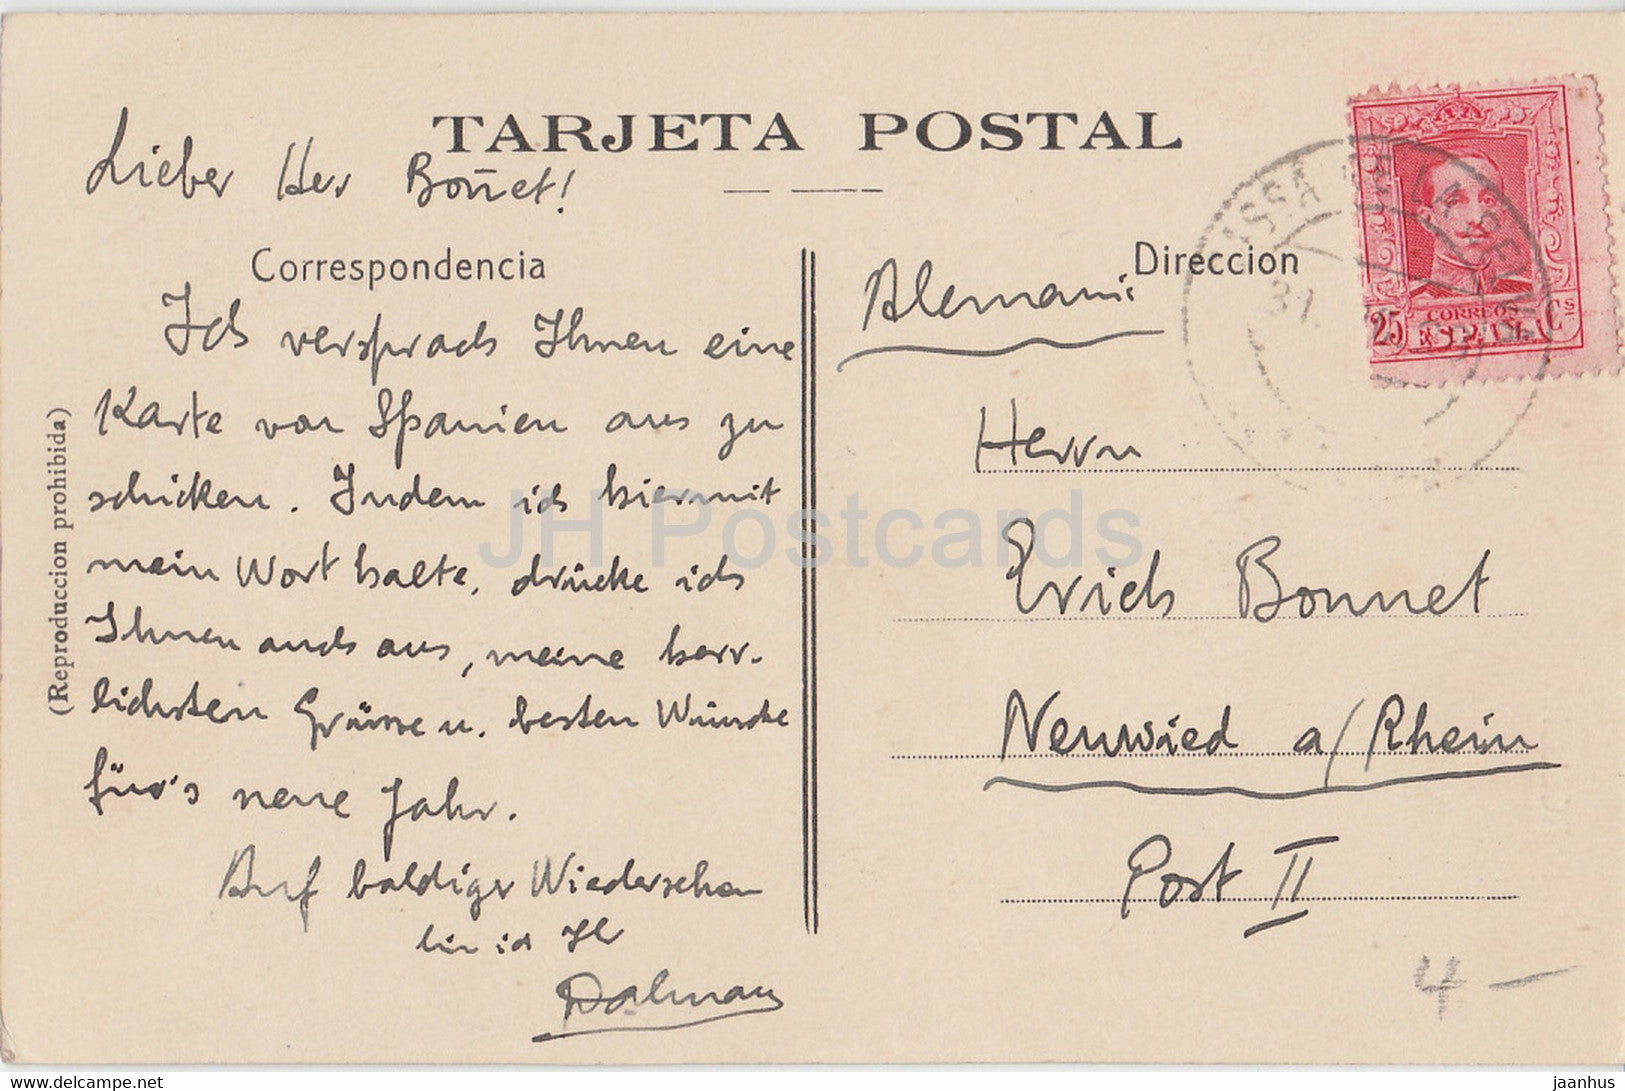 TARJETA POSTAL
Lieber Herr Bonnet!
Correspondencia
Ich versprach Ihnen eine
Karte von Spanien aus zu
schicken. Indem ich hiermit
mein Wort halte, drücke ich
Ihnen auch aus, meine herr-
lichsten Grüsse u. besten Wünsche
für's neue Jahr.
Auf baldiges Wiedersehen
bin ich Ihr
Dalmau
(Reproduccion prohibida)
Direccion
Alemania
Herrn
Erich Bonnet
Neuwied a/Rhein
Post II
4 —
25 Cs
CORREOS
ESPAÑA
CASSA DE LA SELVA
31
JH Postcards
delcampe.net
jaanhus